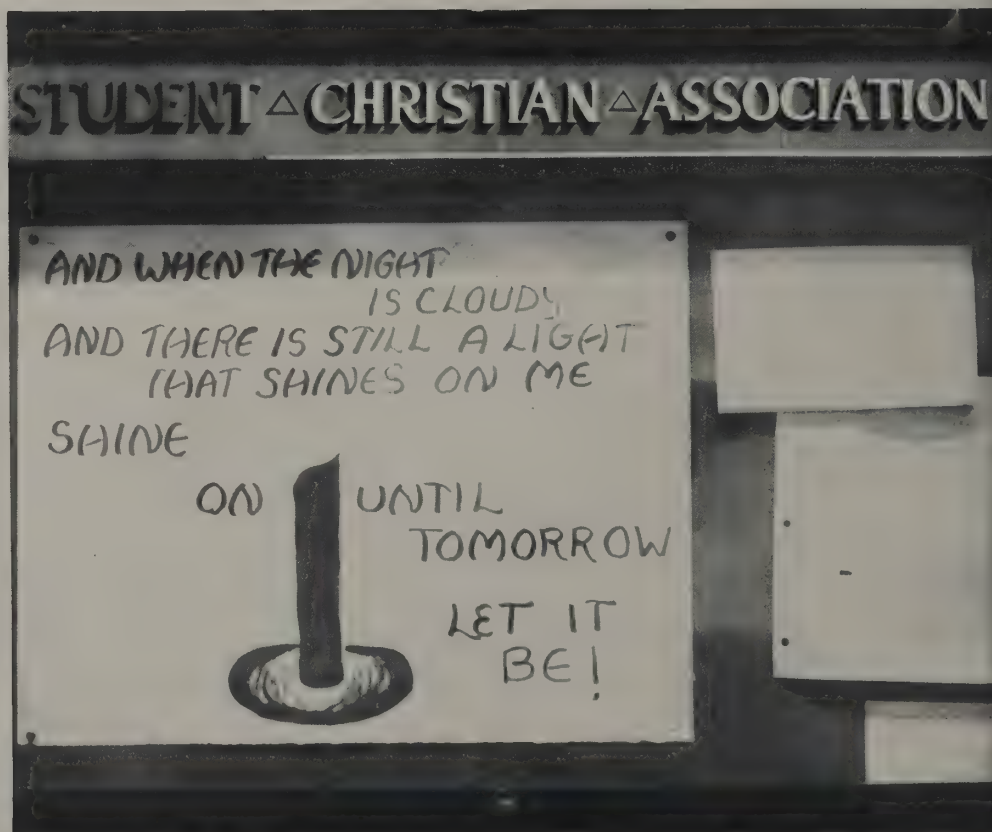 STUDENT △ CHRISTIAN △ ASSOCIATION
AND WHEN THE NIGHT
IS CLOUDY
AND THERE IS STILL A LIGHT
THAT SHINES ON ME
SHINE
ON UNTIL
TOMORROW
LET IT
BE!